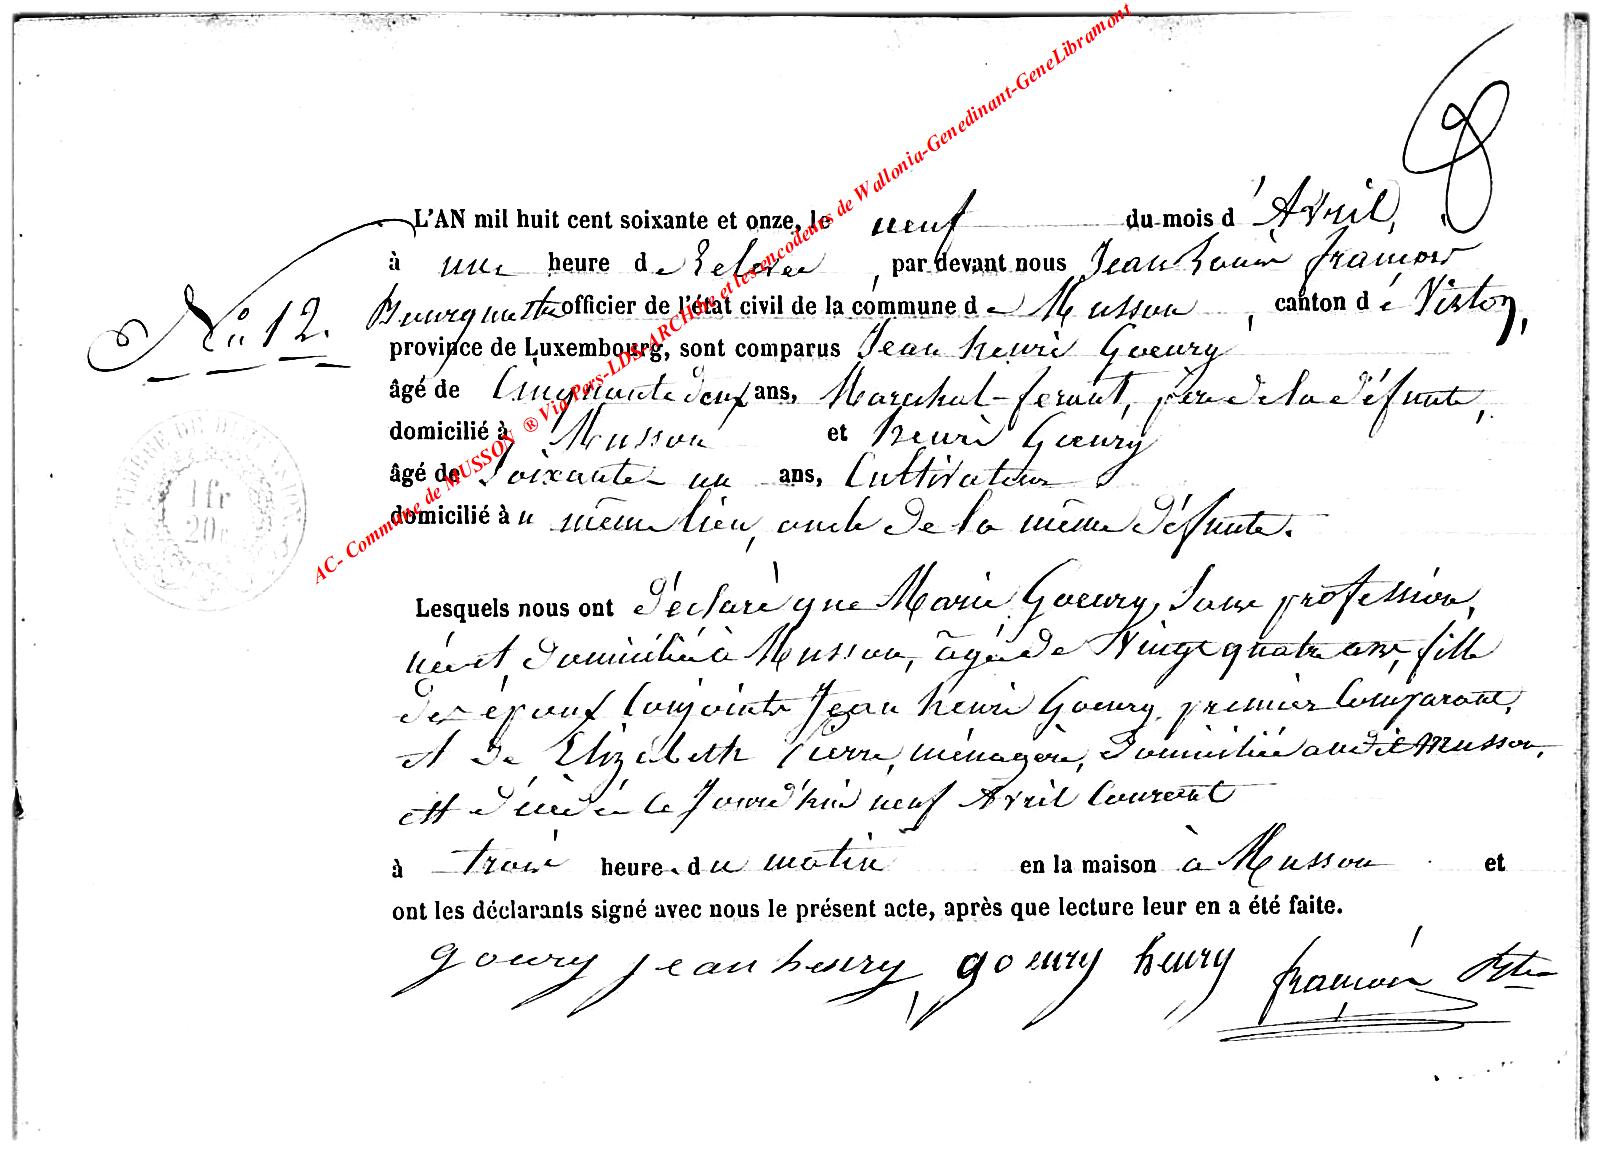 8
L'AN mil huit cent soixante et onze, le neuf du mois d'Avril,
à une heure de Relevée, par devant nous Jean Louis François
Bourguette officier de l'état civil de la commune de Musson, canton dé Virton,
N.o 12.
province de Luxembourg, sont comparus Jean henri Goeury
âgé de Cinquante deux ans, Marechal-ferant, père de la défunte,
domicilié à Musson et henri Goeury
âgé de Soixante un ans, Cultivateur
domicilié àu même lieu, oncle de la même défunte.
1 fr
20 c
Lesquels nous ont déclaré que Marie Goeury, Sans profession,
née et domiciliée à Musson, âgée de Vingt quatre ans, fille
des époux Conjoints Jean henri Goeury, premier Comparant,
et de Elizabeth Pierre, ménagère, domiciliée audit Musson,
est décédée le Jourd'hui neuf Avril Courant
à trois heures du matin en la maison à Musson et
ont les déclarants signé avec nous le présent acte, après que lecture leur en a été faite.
goeury jean henry, goeury henry françois
AC- Commune de MUSSON ® Via Pers-LDS-ARCHive et les encodeurs de Wallonia-Genedinant-GeneLibramont